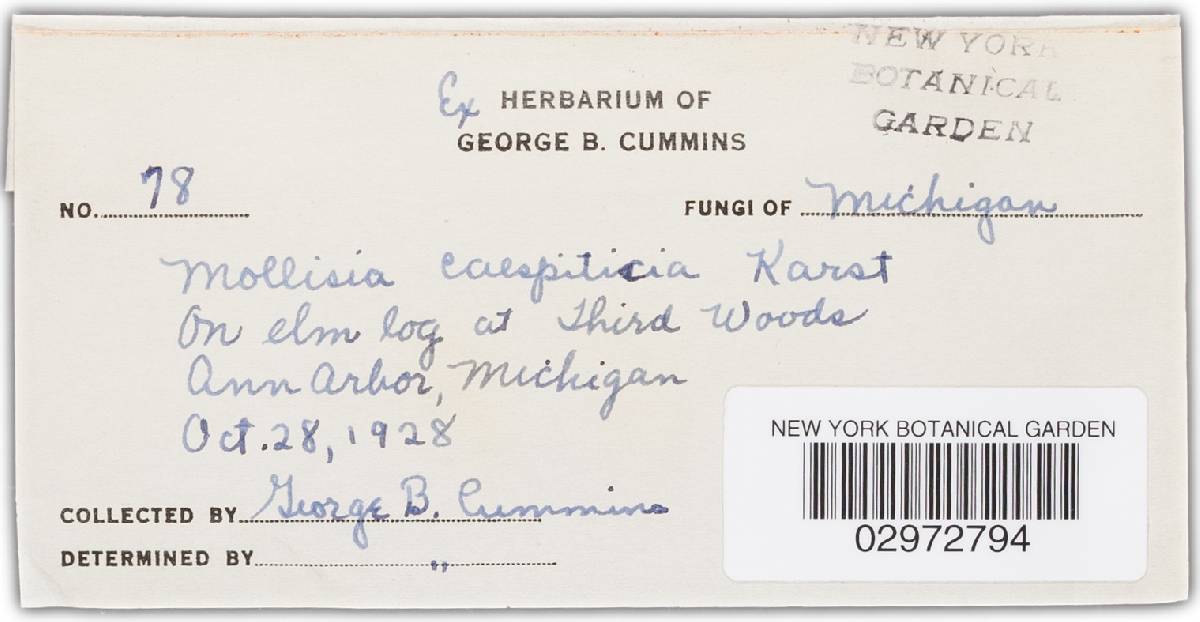 NEW YORK
BOTANICAL
GARDEN
Ex HERBARIUM OF
GEORGE B. CUMMINS
NO. 78
FUNGI OF Michigan
Mollisia caespiticia Karst
On elm log at Third Woods
Ann Arbor, Michigan
Oct. 28, 1928
COLLECTED BY George B. Cummins
DETERMINED BY "
NEW YORK BOTANICAL GARDEN
02972794